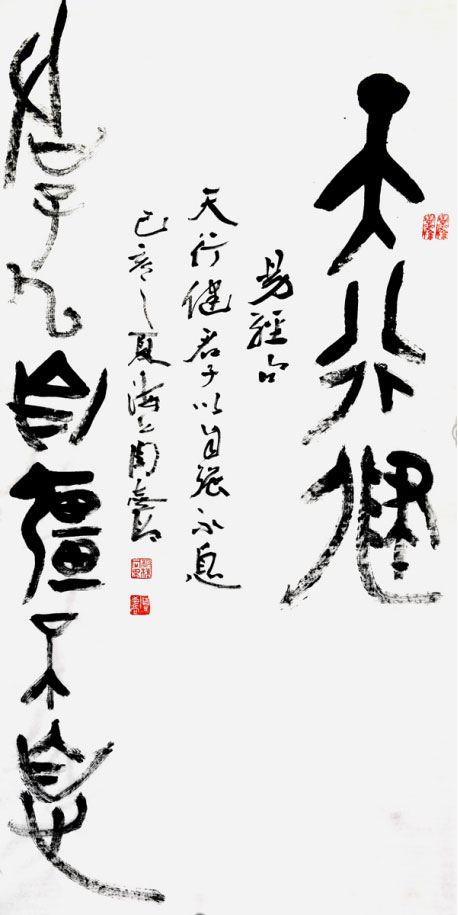 天行健
易經句
天行健君子以自强不息
己亥之夏海上周
君子以自彊不息